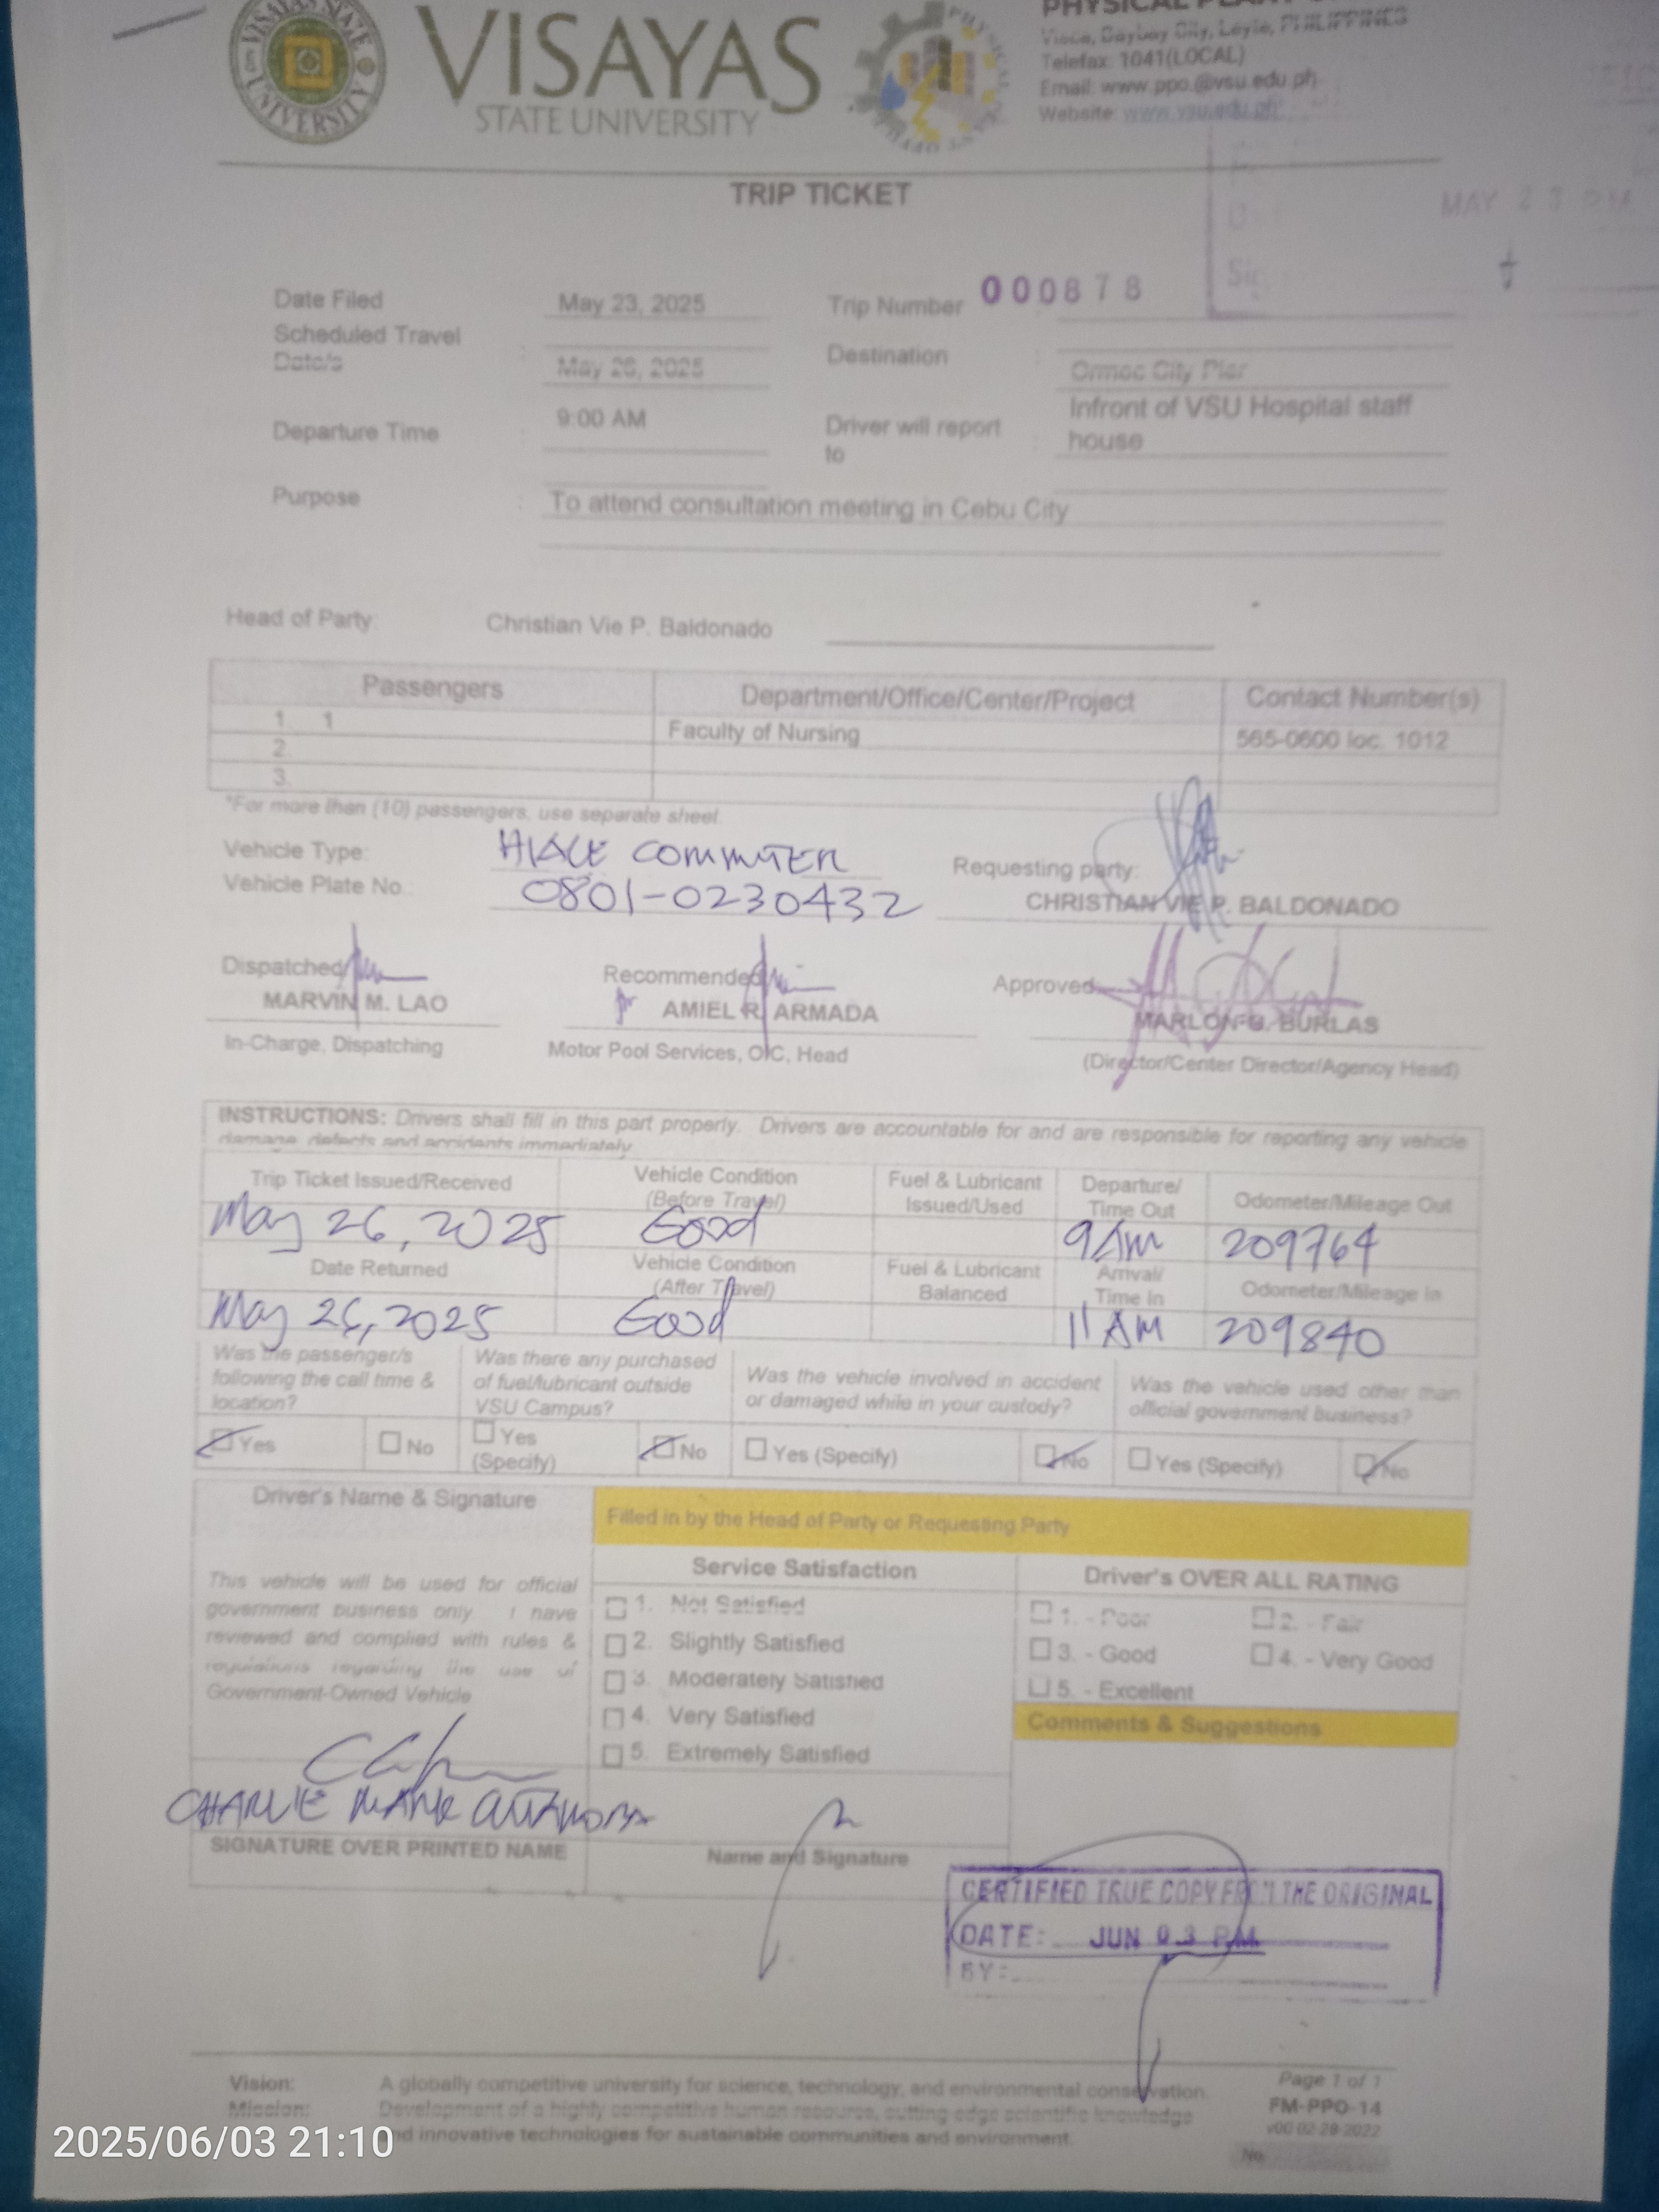 VISAYAS STATE UNIVERSITY
VISAYAS
STATE UNIVERSITY
Visca, Baybay City, Leyte, PHILIPPINES
Telefax: 1041(LOCAL)
Email: www.ppo.@vsu.edu.ph
Website: www.vsu.edu.ph
TRIP TICKET
MAY 23 PM
Date Filed May 23, 2025 Trip Number 000878
Scheduled Travel
Date/s : May 26, 2025 Destination : Ormoc City Pier
Departure Time 9:00 AM Driver will report to : Infront of VSU Hospital staff
house
Purpose : To attend consultation meeting in Cebu City
Head of Party: Christian Vie P. Baldonado
Passengers Department/Office/Center/Project Contact Number(s)
1. 1 Faculty of Nursing 565-0600 loc. 1012
2.
3.
*For more than (10) passengers, use separate sheet.
Vehicle Type: HIACE COMMUTER
Vehicle Plate No.: 0801-0230432
Requesting party:
CHRISTIAN VIE P. BALDONADO
Dispatched Recommended Approved
MARVIN M. LAO AMIEL R. ARMADA MARLON G. BURLAS
In-Charge, Dispatching Motor Pool Services, OIC, Head (Director/Center Director/Agency Head)
INSTRUCTIONS: Drivers shall fill in this part properly. Drivers are accountable for and are responsible for reporting any vehicle
damage, defects and accidents immediately.
Trip Ticket Issued/Received Vehicle Condition (Before Travel) Fuel & Lubricant Issued/Used Departure/ Time Out Odometer/Mileage Out
May 26, 2025 Good 9AM 209764
Date Returned Vehicle Condition (After Travel) Fuel & Lubricant Balanced Arrival/ Time In Odometer/Mileage In
May 26, 2025 Good 11AM 209840
Was the passenger/s following the call time & location? Was there any purchased of fuel/lubricant outside VSU Campus? Was the vehicle involved in accident or damaged while in your custody? Was the vehicle used other than official government business?
Yes No Yes (Specify) No Yes (Specify) No Yes (Specify) No
Driver's Name & Signature
Filled in by the Head of Party or Requesting Party
This vehicle will be used for official
government business only. I have
reviewed and complied with rules &
regulations regarding the use of
Government-Owned Vehicle
CHARLIE MARK
SIGNATURE OVER PRINTED NAME
Service Satisfaction
1. Not Satisfied
2. Slightly Satisfied
3. Moderately Satisfied
4. Very Satisfied
5. Extremely Satisfied
Name and Signature
Driver's OVER ALL RATING
1. - Poor 2. - Fair
3. - Good 4. - Very Good
5. - Excellent
Comments & Suggestions
CERTIFIED TRUE COPY FROM THE ORIGINAL
DATE: JUN 03 PM
BY:
Vision: A globally competitive university for science, technology, and environmental conservation.
Mission: Development of a highly competitive human resource, cutting edge scientific knowledge
and innovative technologies for sustainable communities and environment.
Page 1 of 1
FM-PPO-14
v00 02-28-2022
No.
2025/06/03 21:10